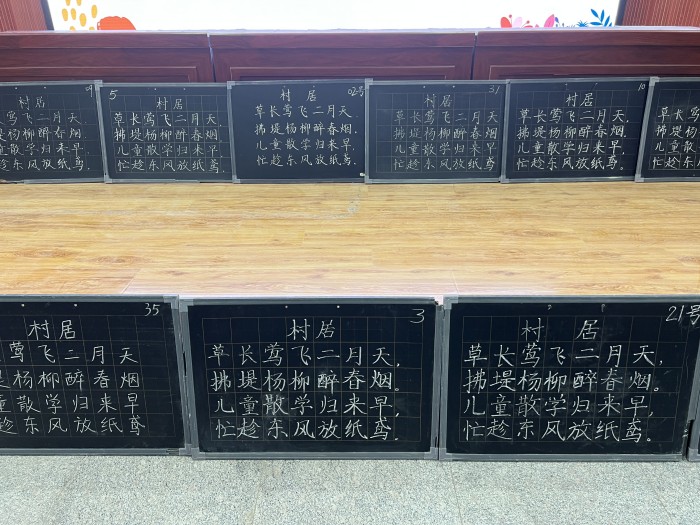 09
村居
草长莺飞二月天
杨柳醉春烟
童散学归来早
趁东风放纸鸢
5
村居
草长莺飞二月天,
拂堤杨柳醉春烟。
儿童散学归来早,
忙趁东风放纸鸢。
02号
村居
草长莺飞二月天,
拂堤杨柳醉春烟。
儿童散学归来早,
忙趁东风放纸鸢。
31
村居
草长莺飞二月天,
拂堤杨柳醉春烟。
儿童散学归来早,
忙趁东风放纸鸢。
10
村居
草长莺飞二月天,
拂堤杨柳醉春烟。
儿童散学归来早,
忙趁东风放纸鸢。
村
草长莺
拂堤杨
儿童散
忙趁东
35
村居
莺飞二月天
堤杨柳醉春烟
童散学归来早
趁东风放纸鸢
3
村居
草长莺飞二月天,
拂堤杨柳醉春烟。
儿童散学归来早,
忙趁东风放纸鸢。
21号
村居
草长莺飞二月天,
拂堤杨柳醉春烟。
儿童散学归来早,
忙趁东风放纸鸢。